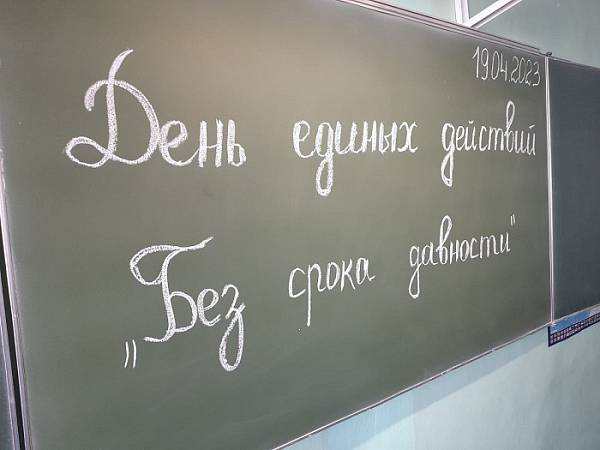 19.04.2023
День единых действий
„Без срока давности"